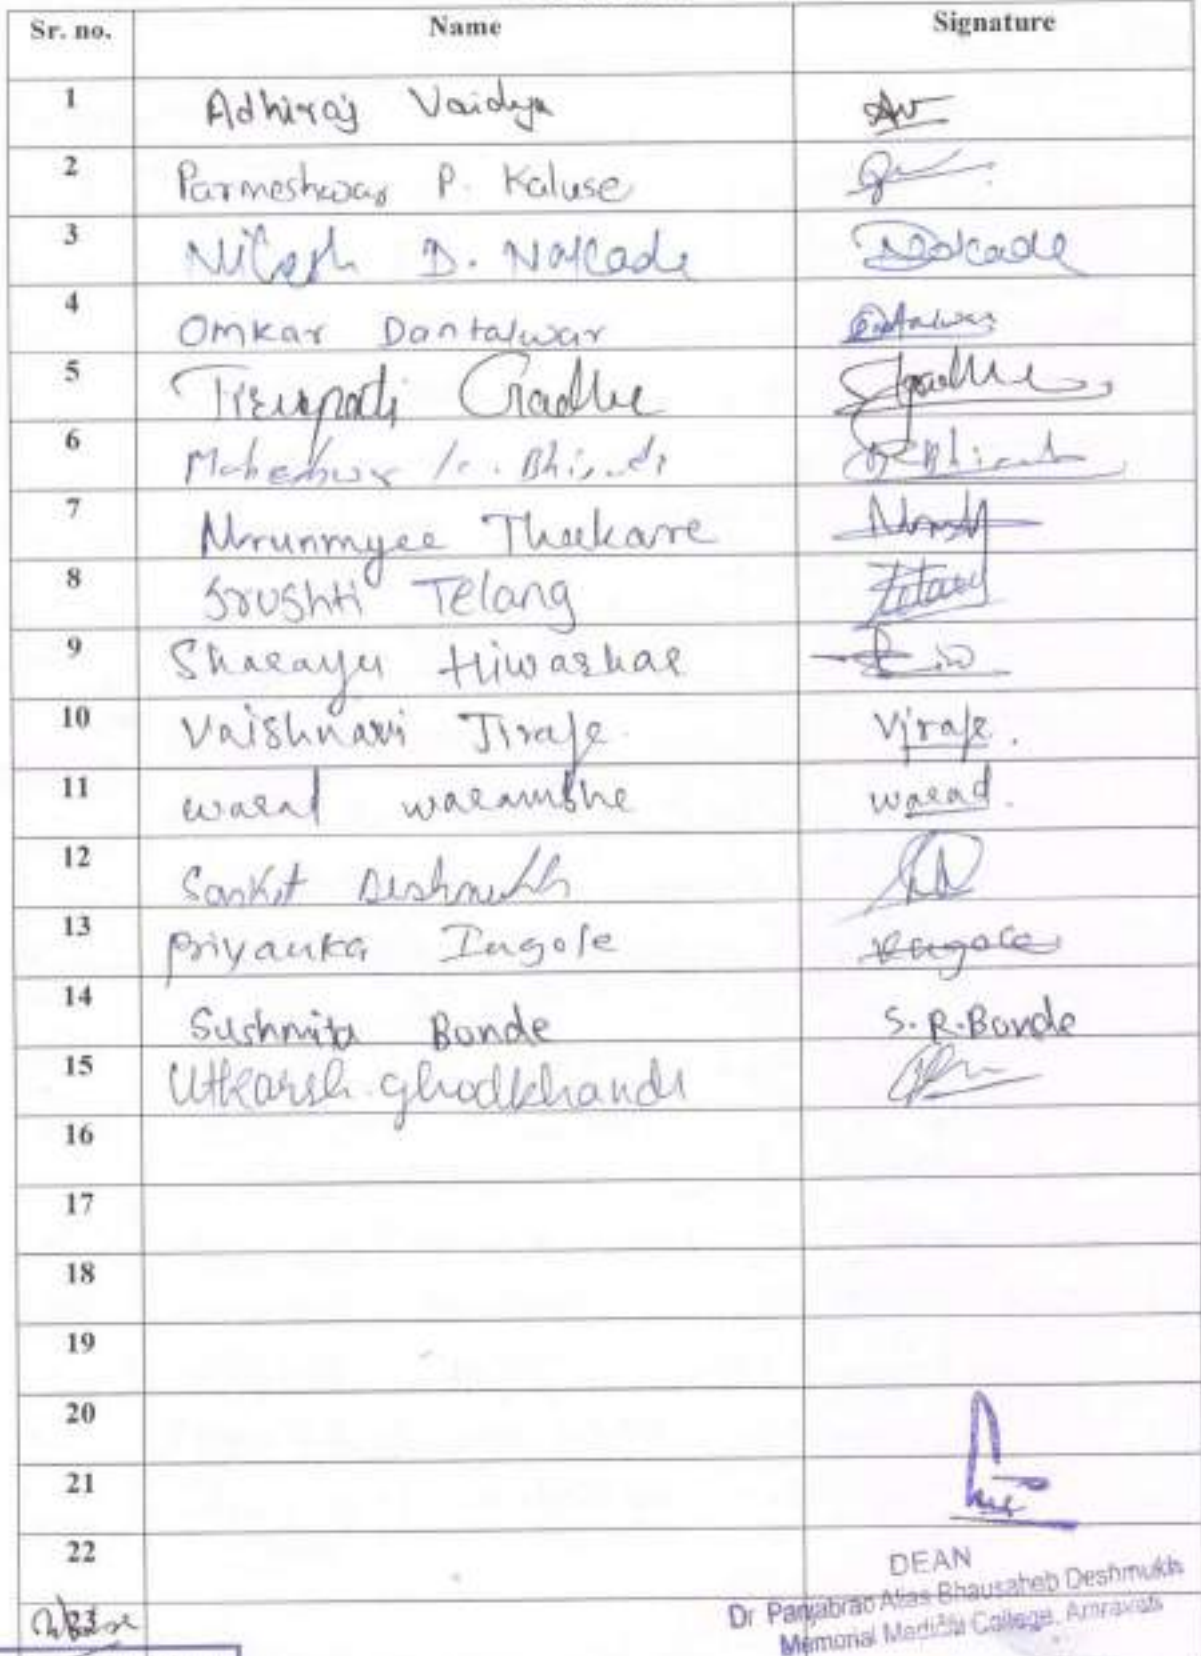 Sr. no. Name Signature
1 Adhiraj Vaidya AV
2 Parmeshwar P. Kaluse
3 Nilesh D. Nakade Nakade
4 Omkar Dantalwar Dantalwar
5 Tirupati Gadhe Gadhe
6 Maheshwar
7 Mrunmyee Thakare
8 Srushti Telang
9 Sharayu Hiwarkar
10 Vaishnavi Jiraje Vjiraje.
11 warad warambhe warad.
12 Sanket Deshmukh
13 Priyanka Ingole Ingole
14 Sushmita Bonde S.R.Bonde
15 Utkarsh Ghodkhande
16
17
18
19
20
21
22
23
DEAN
Dr Panjabrao Alias Bhausaheb Deshmukh
Memorial Medical College, Amravati